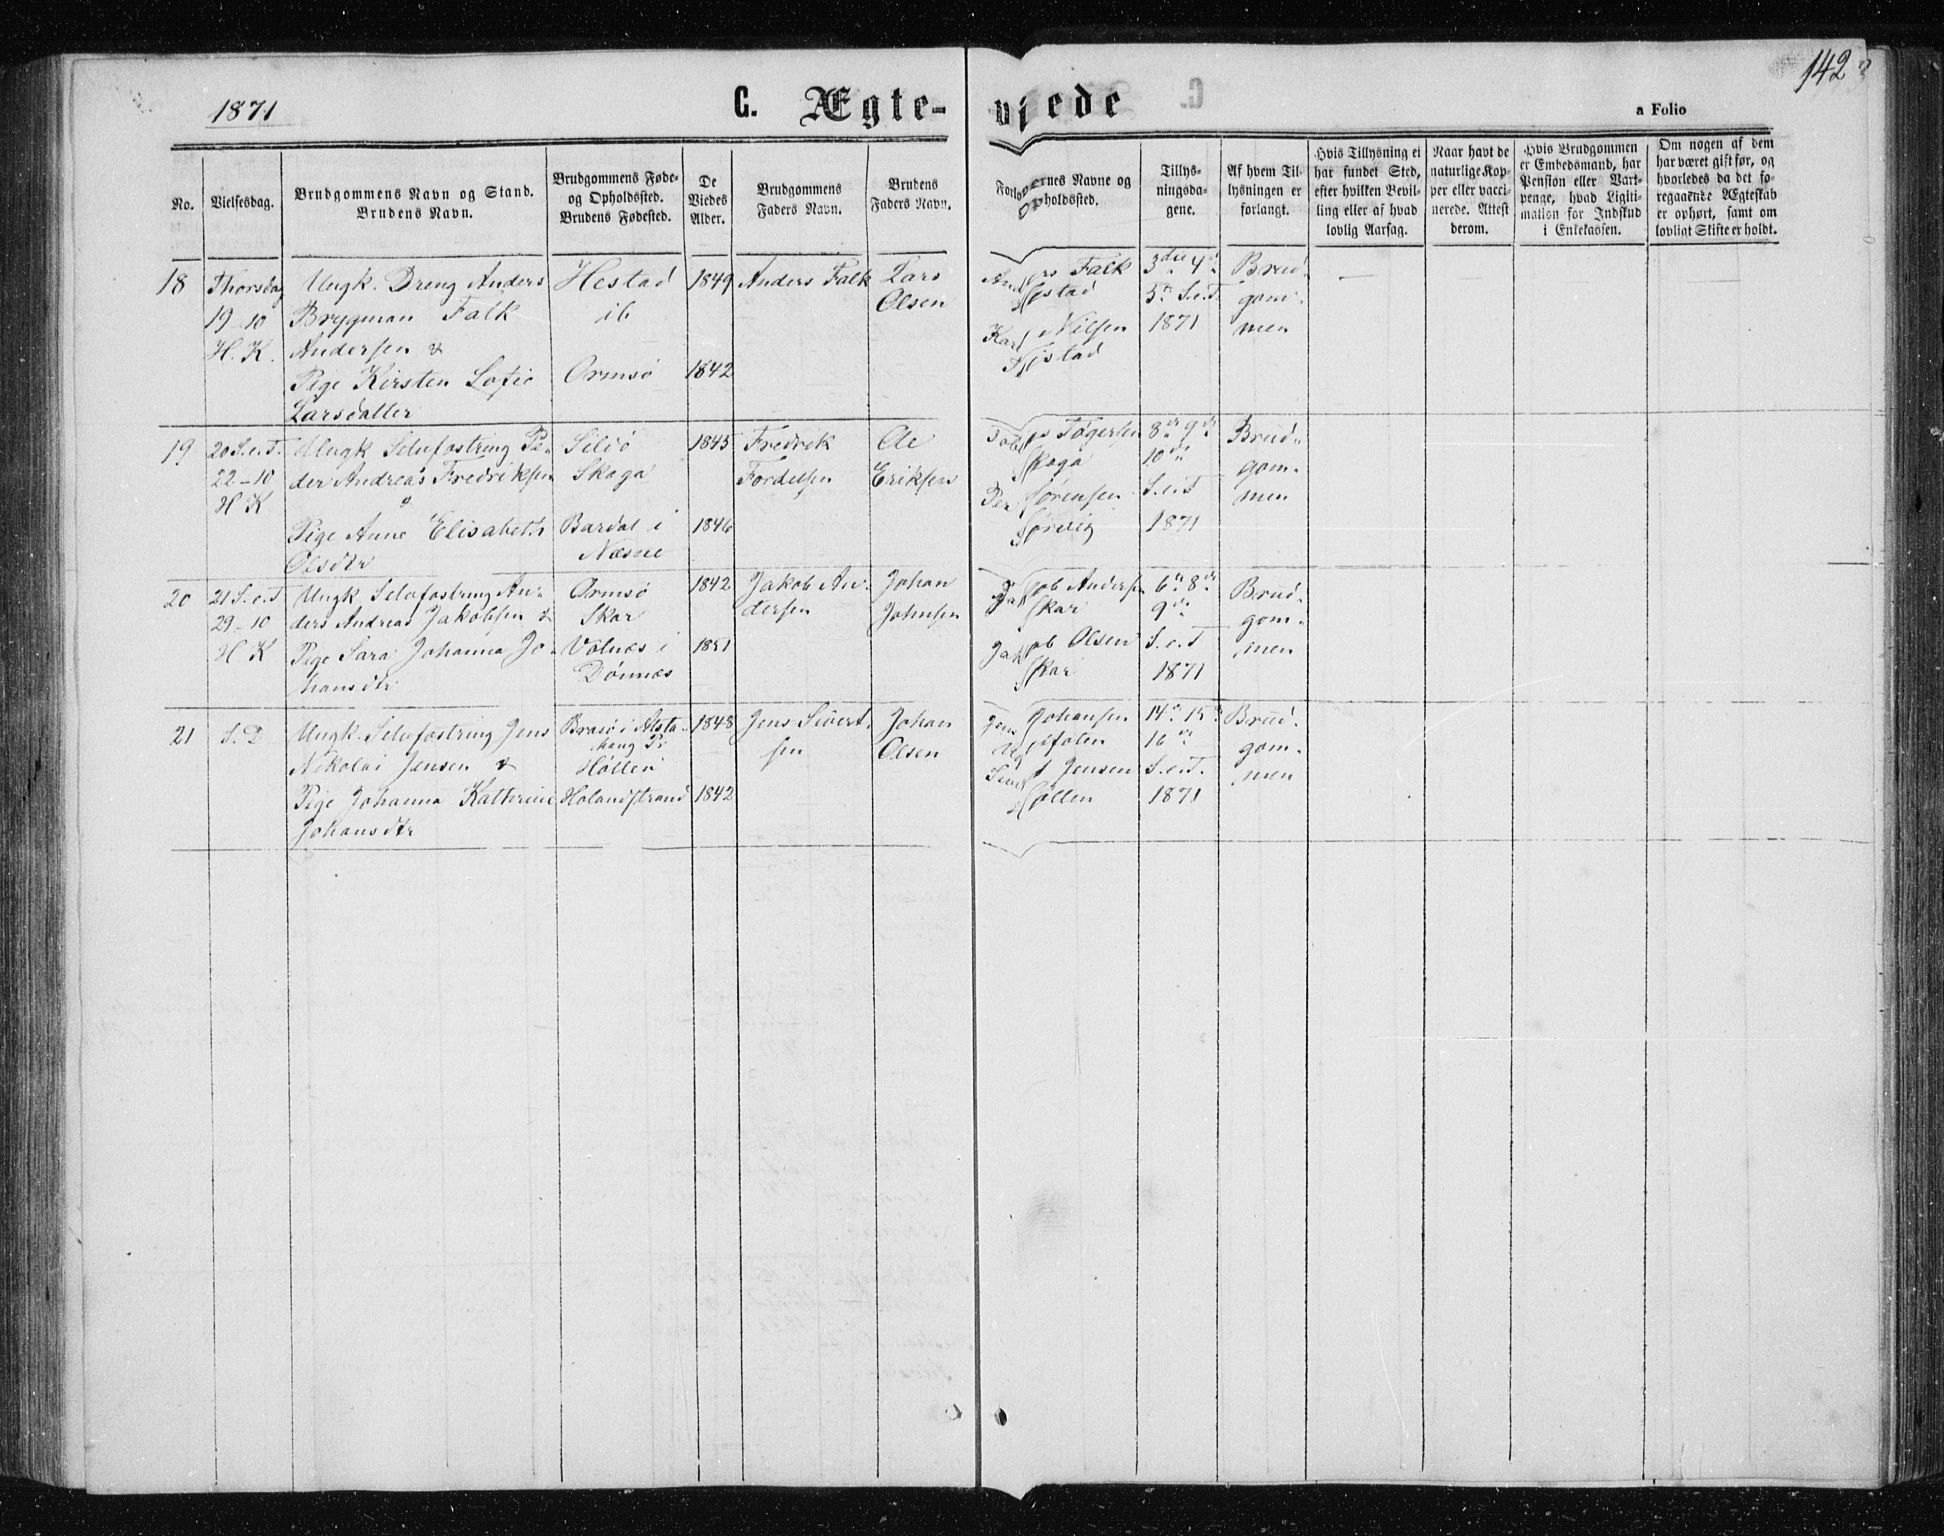 142
1871
C. Ægte-
vjede
a Folio
No.
Vielsesdag.
Brudgommens Navn og Stand.
Brudens Navn.
Brudgommens Føde-
og Opholdssted.
Brudens Fødested.
De
Viedes
Alder.
Brudgommens
Faders Navn.
Brudens
Faders Navn.
ernes Navne og
pholdssted.
Tillys-
ningsda-
gene.
Af hvem Til-
lysningen er
forlangt.
Hvis Tillysning ei
har fundet Sted,
efter hvilken Bevil-
ling eller af hvad
lovlig Aarsag.
Naar havt de
naturlige Kop-
per eller vacci-
nerede. Attest
derom.
Hvis Brudgommen
er Embedsmand, har
Pension eller Vart-
penge, hvad Ligiti-
mation for Indskud
i Enkekassen.
Om nogen af dem
har været gift før, og
hvorledes da det fo-
regaaende Ægteskab
er ophørt, samt om
lovligt Skifte er holdt.
18
Thorsdag
19-10
H. K.
Ungk. Dreng Anders
Brygman Falk
Andersen &
Pige Kirsten Sofie
Larsdatter
Hestad
ib
Ormsø
1849
1842
Anders Falk
Lars
Olsen
Anders Falk
Hestad
Karl Nilsen
Hestad
3die 4de
5te S.e.T.
1871
Brud-
gom-
men
19
20 S.e.T.
22-10
H K
Ungk Selvfostring Pe-
der Andreas Fredriksen
&
Pige Anne Elisabeth
Olsdtr
Sildø
Skaga
Bardal i
Næsne
1845
1846
Fredrik
Fordelsen
Ole
Eriksen
Tøgersen
Skaga
Per Sørensen
Sørvig
8de 9de
10de
S.e.T
1871
Brud-
gom-
men
20
21 S.e.T
29-10
H K
Ungk Selvfostring An-
ders Andreas Jakobsen &
Pige Sara Johanna Jo-
hansdtr
Ormsø
Skar
Volnæs i
Dønnæs
1842
1851
Jakob An-
dersen
Johan
Johnsen
Jakob Andersen
Skar
Jakob Olsen
Skar
6te 8de
9de
S.e.T
1871
Brud-
gom-
men
21
S.D
Ungk. Selvfostring Jens
Nikolai Jensen &
Pige Johanna Kathrine
Johansdtr
Brasø i Alsta-
haug Pr
Hølleø
Holandstrand
1848
1842
Jens Sivert-
sen
Johan
Olsen
Jens Johansen
Jensen
14de 15de
16de
S.e.T.
1871
Brud-
gom-
men